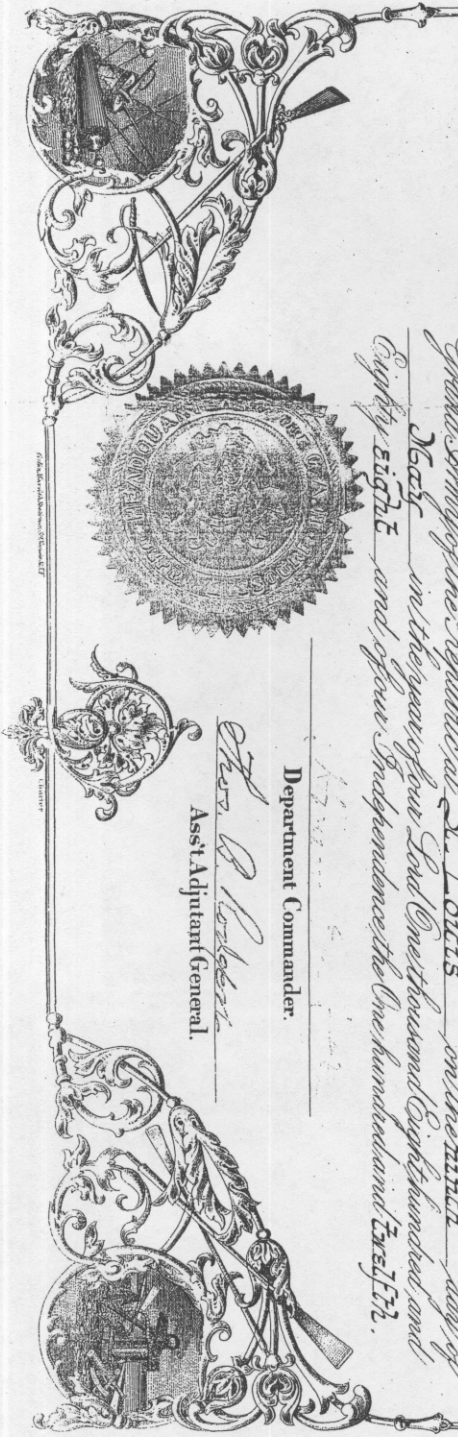 Grand Army of the Republic, at St. Louis on the ninth day of
May in the year of our Lord One thousand Eight hundred and
Eighty eight and of our Independence the One hundred and Twelfth.
Department Commander.
Thos. B. Rodgers
Ass't Adjutant General.
HEADQUARTERS G.A.R.
Charter